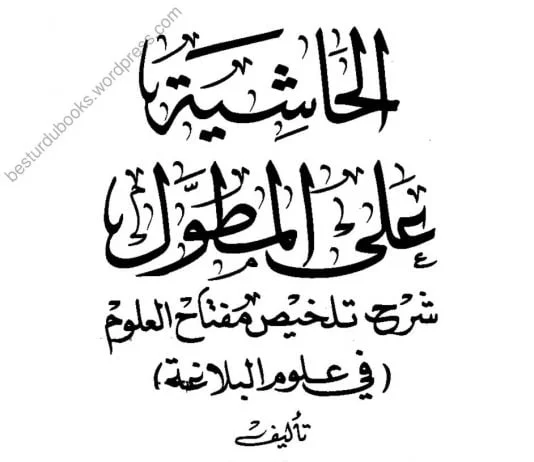 besturdubooks.wordpress.com
الحاشية
على المطول
شرح تلخيص مفتاح العلوم
(في علوم البلاغة)
تأليف